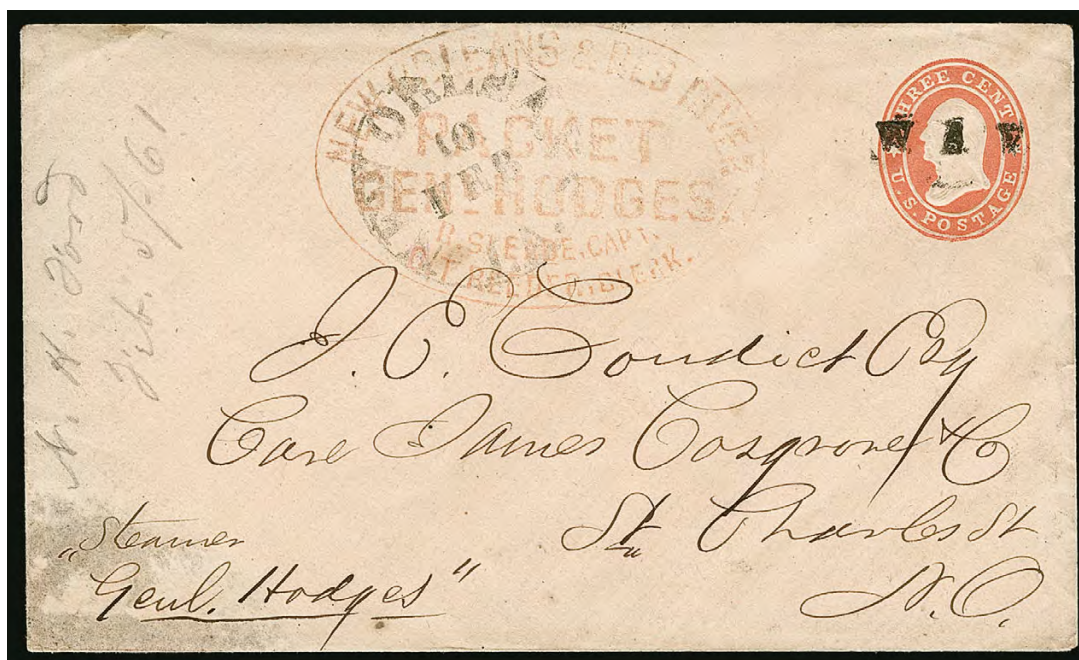 NEW-ORLEANS & RED RIVER
PACKET
GENL. HODGES.
CAPT.
CLERK.
10
FEB
THREE CENTS
U.S. POSTAGE
W A Y
N. H.
Feb. 5/61
J. C. Condict Esq
Care James Cosgrove & Co
St. Charles St
N. O.
"Steamer
Genl. Hodges"